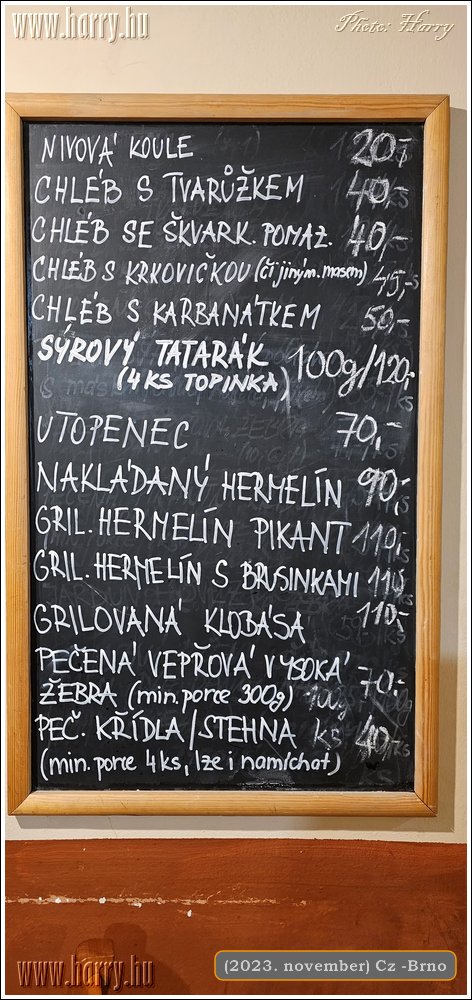 www.harry.hu
Photo: Harry
NIVOVÁ KOULE 20,-
CHLÉB S TVARŮŽKEM 40,-
CHLÉB SE ŠKVARK. POMAZ. 40,-
CHLÉB S KRKOVIČKOU (či jiným. masem) 45,-
CHLÉB S KARBANÁTKEM 50,-
SÝROVÝ TATARÁK 100g/120,-
(4 KS TOPINKA)
UTOPENEC 70,-
NAKLÁDANÝ HERMELÍN 90,-
GRIL. HERMELÍN PIKANT 110,-
GRIL. HERMELÍN S BRUSINKAMI 110,-
GRILOVANÁ KLOBÁSA 110,-
PEČENÁ VEPŘOVÁ VYSOKÁ
ŽEBRA (min. porce 300g) 100g 70,-
PEČ. KŘÍDLA/STEHNA ks 40,-
(min. porce 4 ks, lze i namíchat)
www.harry.hu
(2023. november) Cz -Brno